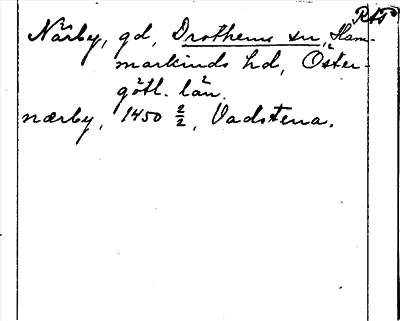 Närby, gd, Drothems sn, Ham-
markinds hd, Öster-
götl. län.
nærby, 1450 2/2, Vadstena.